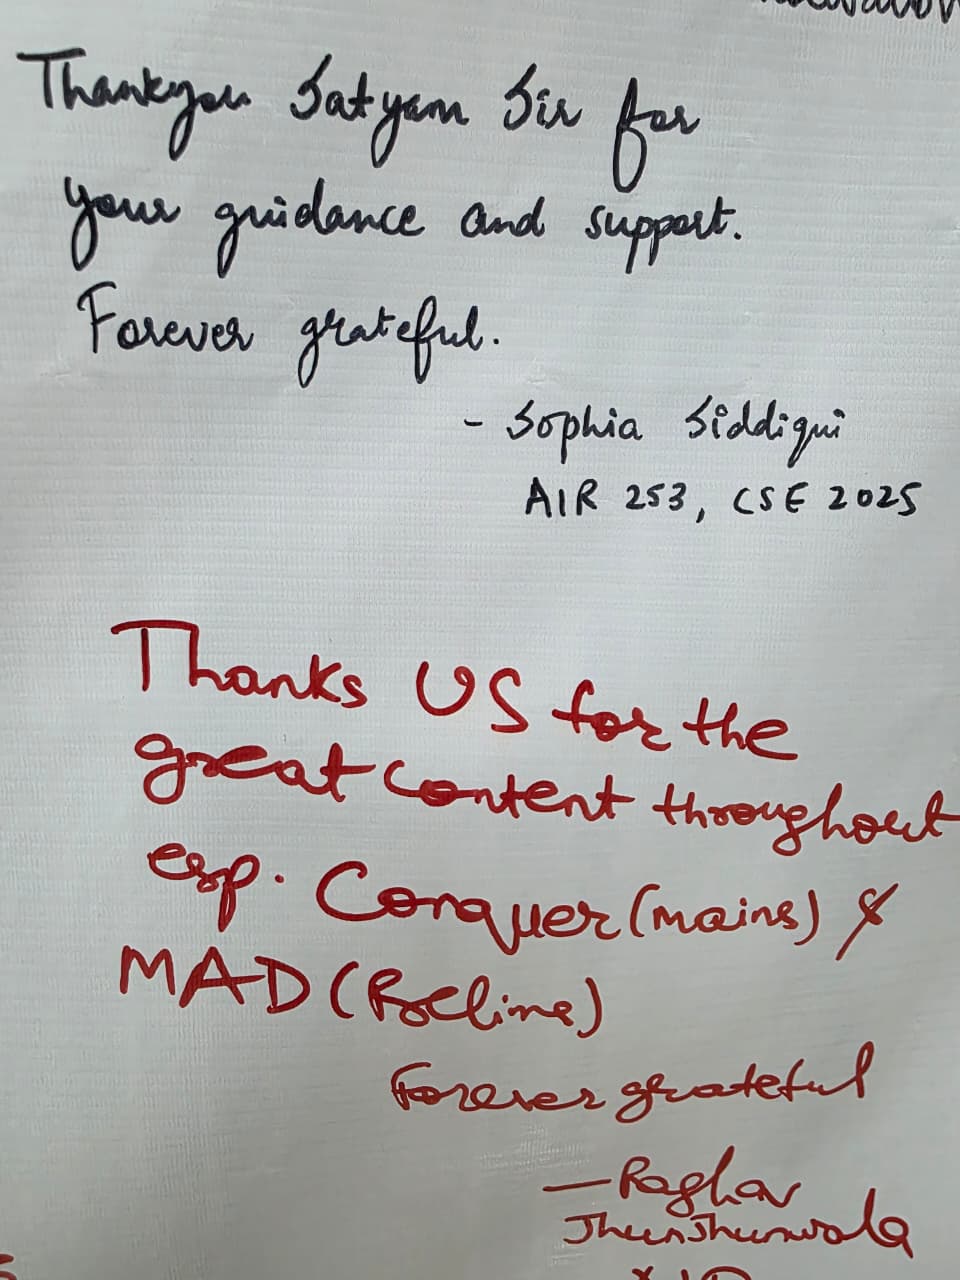 Thankyou Satyam Sir for
your guidance and support.
Forever grateful.
- Sophia Siddiqui
AIR 253, CSE 2025
Thanks US for the
great content throughout
esp. Conquer (mains) &
MAD (Prelims)
Forever grateful
- Raghav
Jhunjhunwala